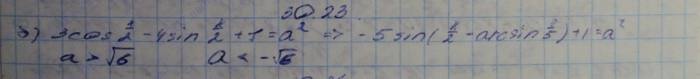 30.23.
б) 3cos x/2 - 4sin x/2 + 1 = a² => - 5sin(x/2 - arcsin 3/5) + 1 = a²
a > √6 a < -√6